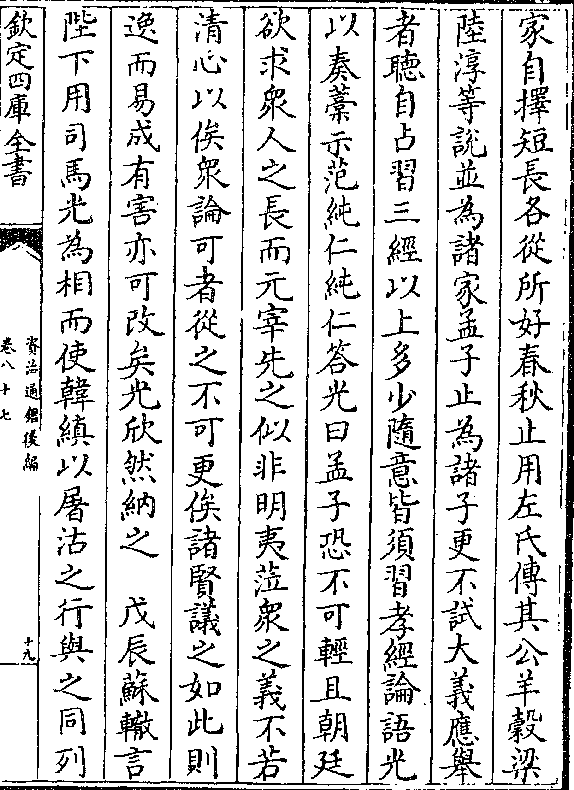 家自擇短長各從所好春秋止用左氏傳其公羊榖梁
陸淳等說並為諸家孟子止為諸子更不試大義應舉
者聽自占習三經以上多少隨意皆須習孝經論語光
以奏藁示范純仁純仁答光曰孟子恐不可輕且朝廷
欲求衆人之長而元宰先之似非明夷蒞衆之義不若
清心以俟衆論可者從之不可更俟諸賢議之如此則
逸而易成有害亦可改矣光欣然納之　戊辰蘇轍言
陛下用司馬光為相而使韓縝以屠沽之行與之同列
欽定四庫全書
資治通鑑後編
卷八十七
十九